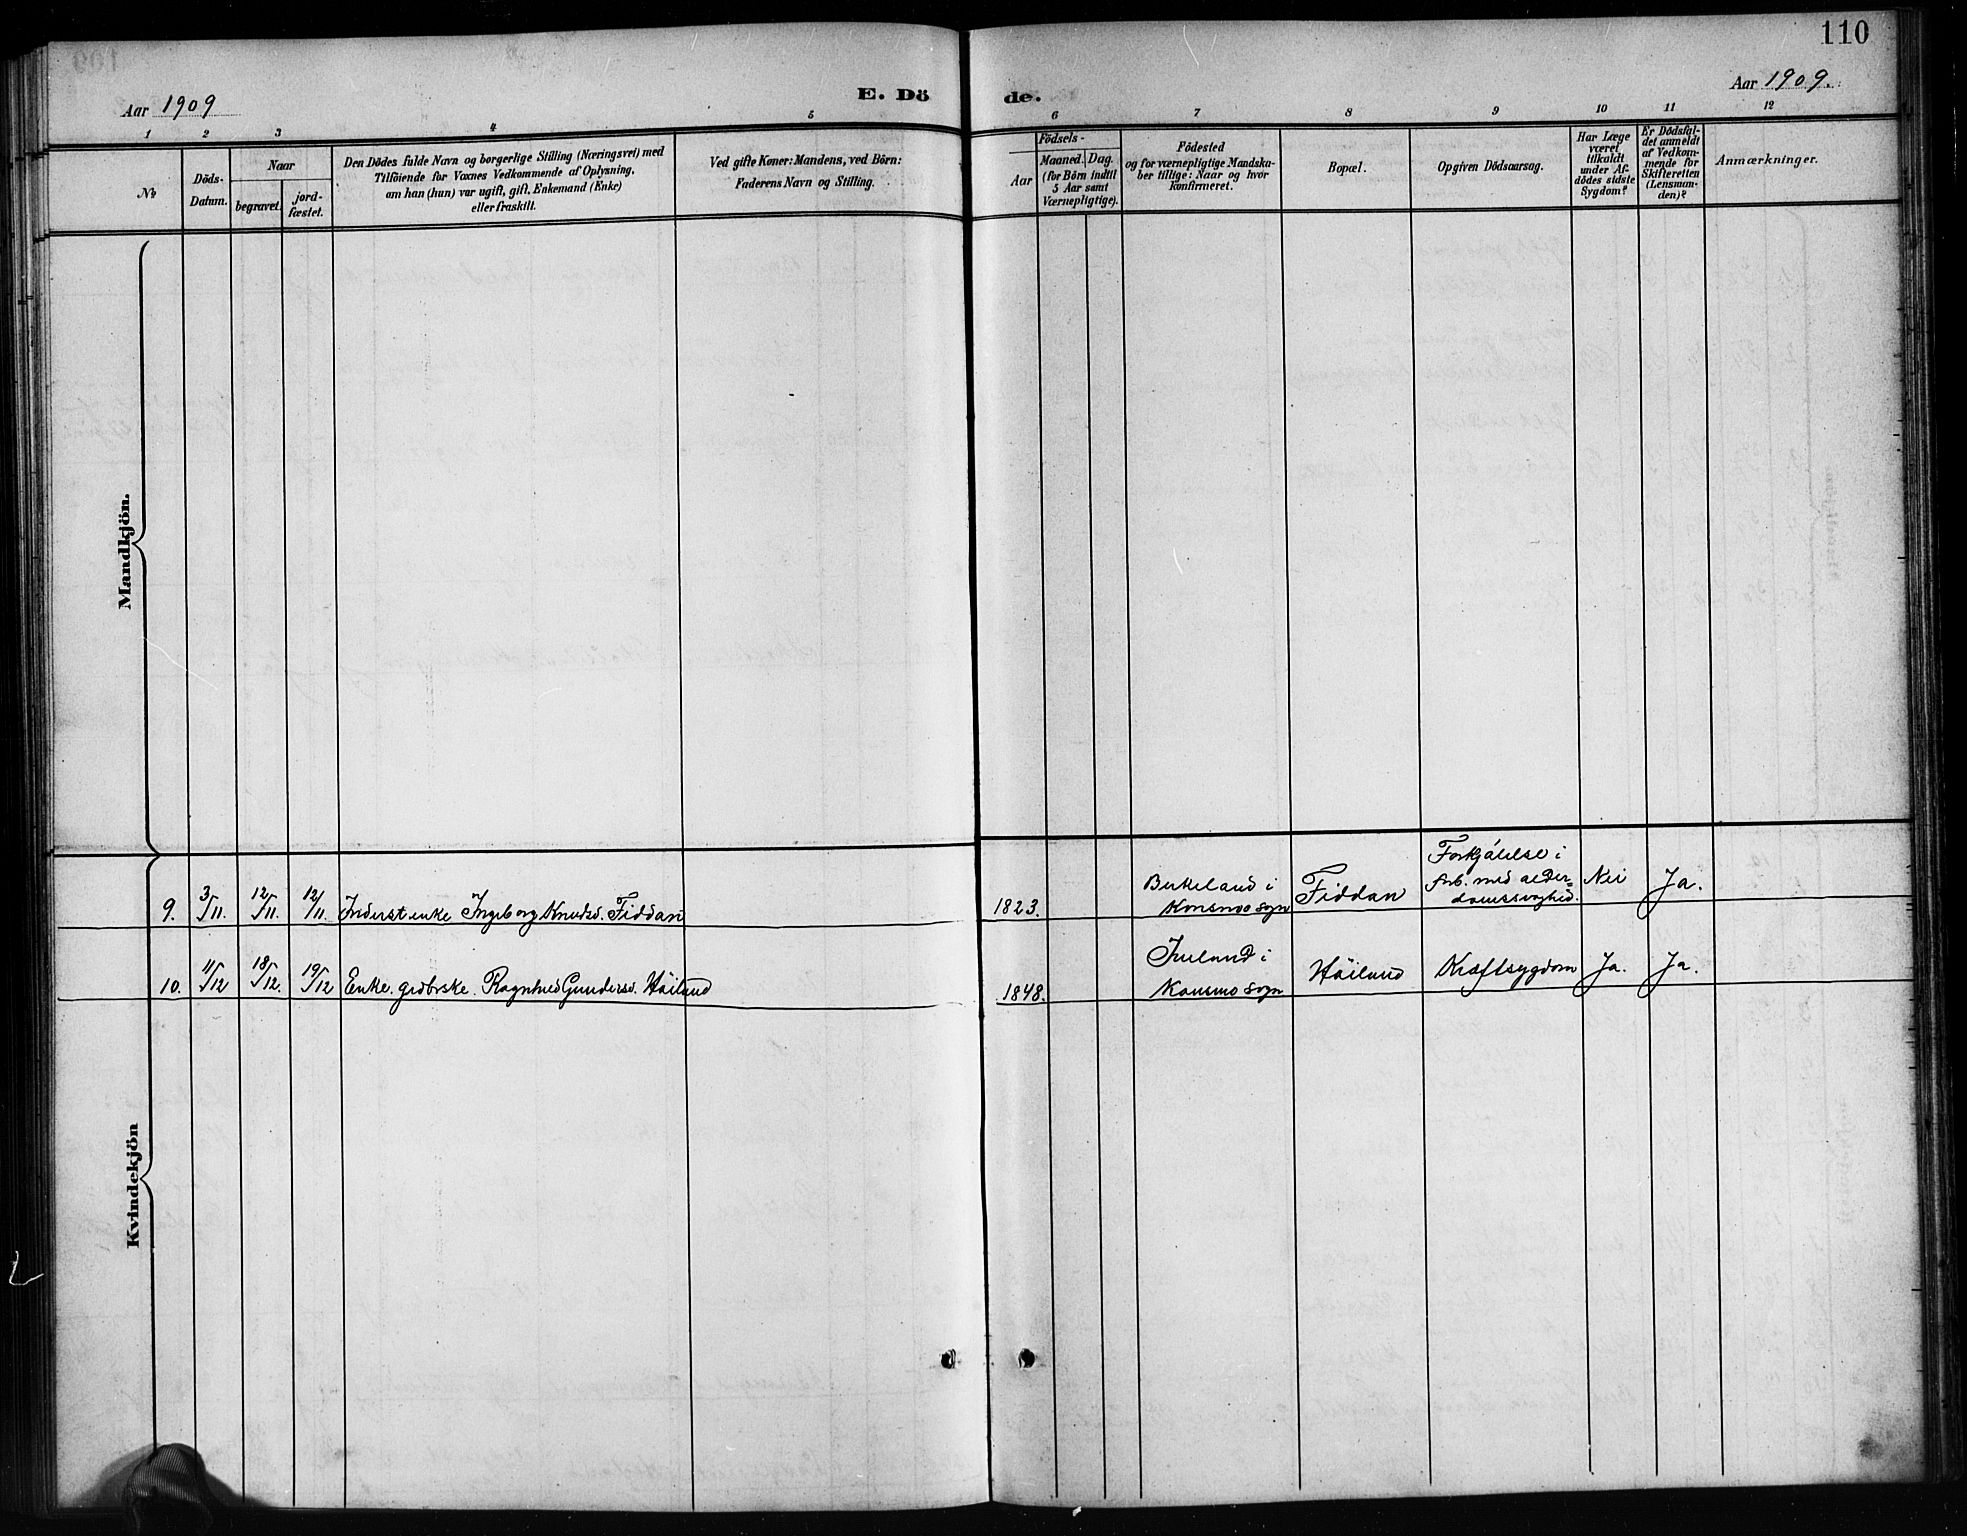 110
Aar 1909
E. Dö
de.
Aar 1909.
1 2 3 4 5 6 7 8 9 10 11 12
No
Döds-
Datum.
Naar
begravet.
jord-
fæstet.
Den Dödes fulde Navn og borgerlige Stilling (Næringsvei) med
Tilföiende for Voxnes Vedkommende af Oplysning,
om han (hun) var ugift, gift, Enkemand (Enke)
eller fraskilt.
Ved gifte Koner: Mandens, ved Börn:
Faderens Navn og Stilling.
Födsels-
Aar
Maaned.
Dag.
(for Börn indtil
5 Aar samt
Værnepligtige).
Födested
og for værnepligtige Mandska-
ber tillige: Naar og hvor
konfirmeret.
Bopæl.
Opgiven Dödsaarsag.
Har Læge
været
tilkaldt
under Af-
dödes sidste
Sygdom?
Er Dödsfal-
det anmeldt
af Vedkom-
mende for
Skifteretten
(Lensman-
den)?
Anmærkninger.
Mandkjön.
Kvindekjön
9. 3/11. 12/11. 12/11. Inderst enke Ingeborg Knudsd. Fiddan
1823.
Birkeland i
Konsmo sogn
Fiddan
Forkjölelse i
forb. med alder-
domssvaghed.
Nei
Ja.
10. 11/12 18/12. 19/12 Enke. grdbrske. Ragnhild Gundersd. Höiland
1848.
i
Konsmo sogn
Höiland
Kræftsygdom
Ja.
Ja.